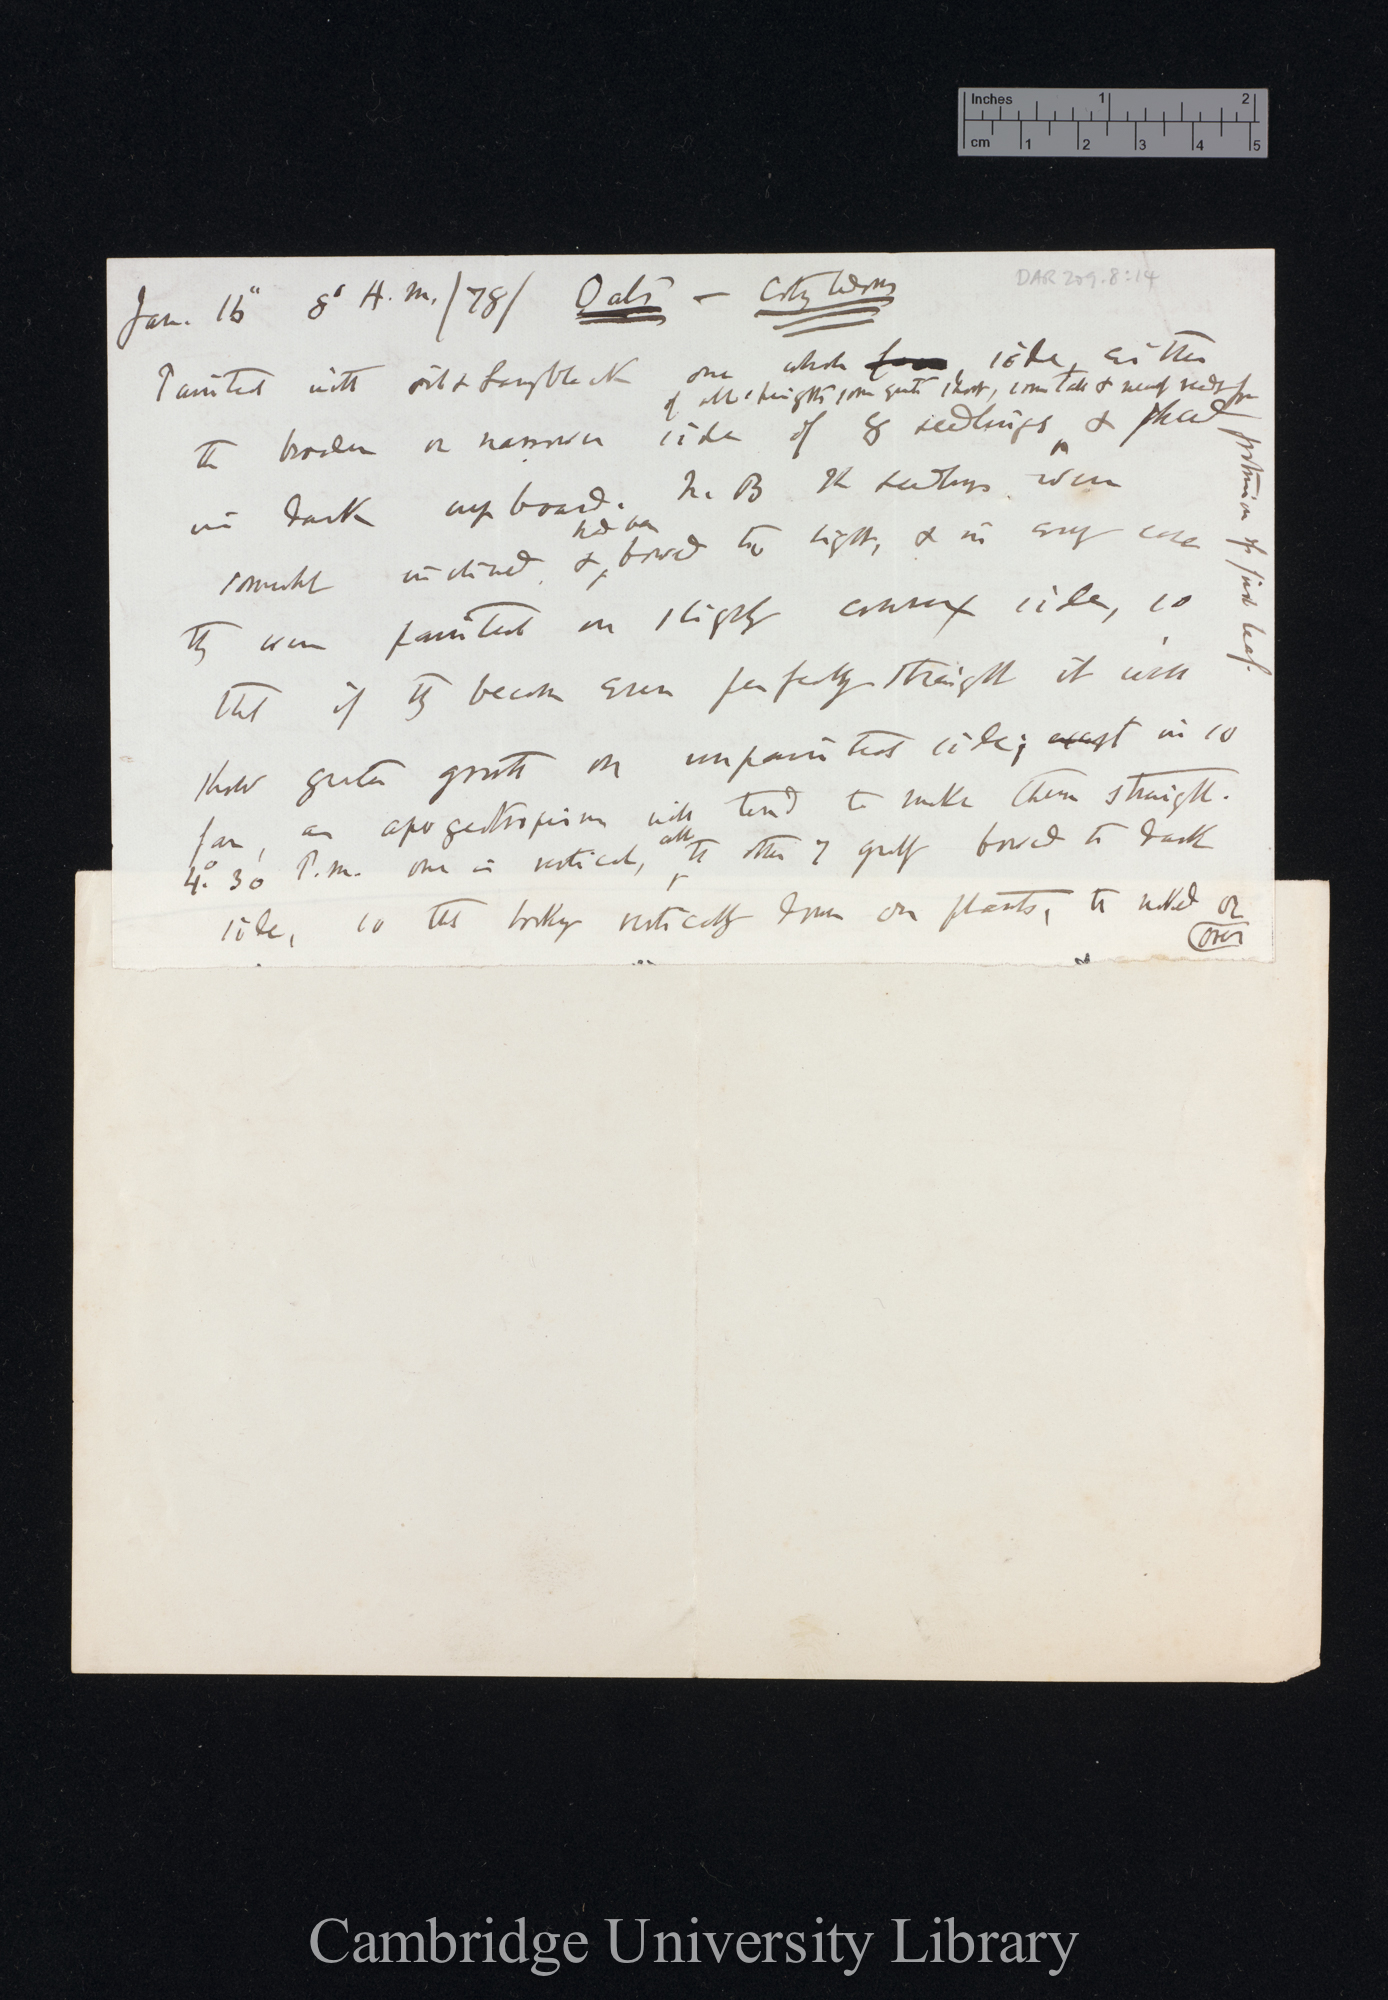 Inches 1 2
cm 1 2 3 4 5
DAR 209.8:14
Jan. 16° 8° A.m./78/ Oats — Cotyledons
Painted with oil & Lampblack one whole side, either
of all heights some quite short, some tall & nearly ready for
protrusion of first leaf.
the broader or narrower side of 8 seedlings & placed
in dark cupboard. N.B The seedlings were
had been
somewhat inclined & bowed to light, & in every case
they were painted on slightly convex side, so
that if they become even perfectly straight it will
show greater growth on unpainted side; except in so
far, as apogeotropism will tend to make them straight.
4° 30' P.m. one is vertical, all the other 7 greatly bowed to dark
side, so that looking vertically down on plants, the naked or
(over
Cambridge University Library